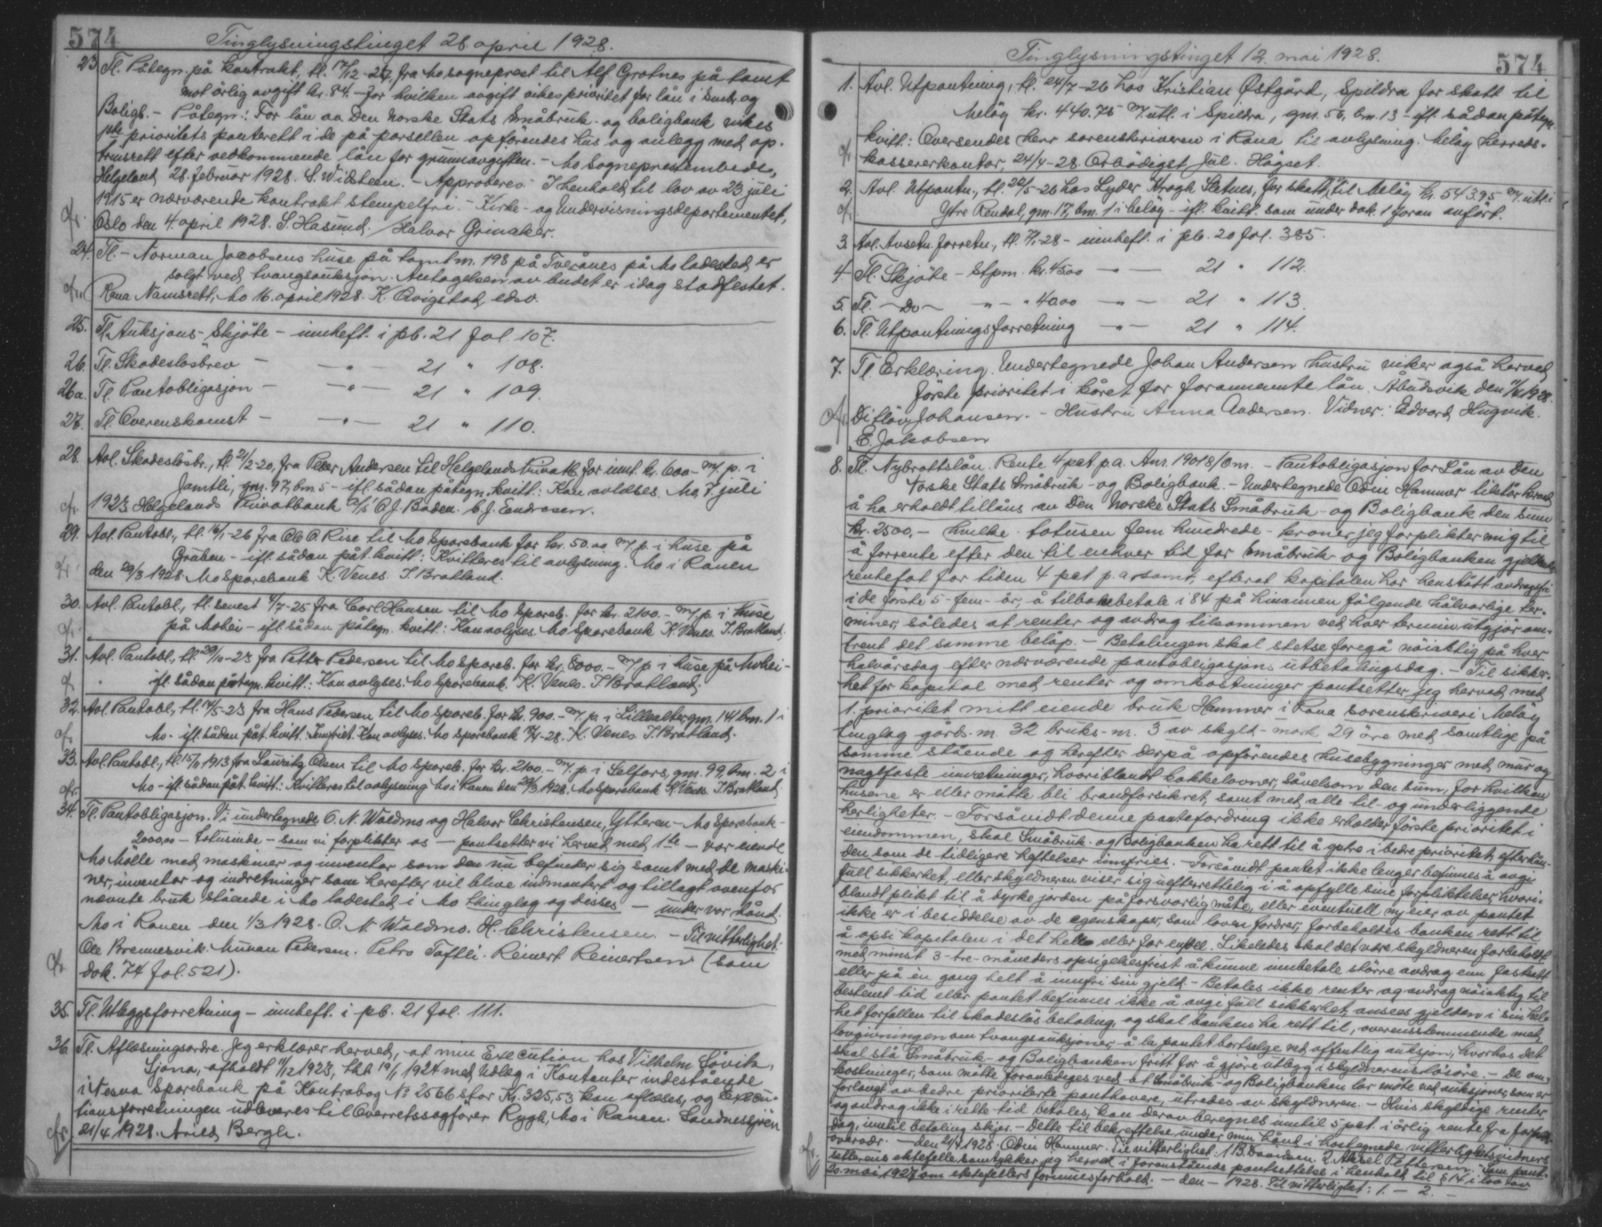 574
Tinglysningstinget 28 april 1928.
23 Tl. Påtegn. på kontrakt, tl. 17/12-27, fra Mo sogneprest til Alf Grotnes på tomt
mot årlig avgift kr. 84.- for hvilken avgift vikes prioritet for lån i Småbr. og
Boligb. - Påtegn: For lån av Den Norske Stats Småbruk- og boligbank vikes
prioritets panterett i de på parsellen opførendes hus og anlegg med op-
trinsrett efter vedkommende lån for grunnavgiften. - Mo Sogneprestembede,
Helgeland 28. februar 1928. S. Widsteen. - Approberes. I henhold til lov av 23 juli
1915 er nærværende kontrakt stempelfri. - Kirke- og Undervisningsdepartementet,
Oslo den 4. april 1928. S. Hasund. / Halvor Grinaker.
24. Tl. - Norman Jacobsens huse på tomt nr. 198 på Tverånes på Mo ladested, er
solgt ved tvangsauksjon. Antagelsen av budet er idag stadfestet.
Rana Namsrett, Mo 16. april 1928. K. Qvigstad, edsv.
25. Tl. Auksjons-Skjöte - innheft. i pb. 21 fol 107.
26. Tl. Skadeslösbrev - -"- 21 " 108.
26a. Tl. Pantobligasjon - -"- 21 " 109.
27. Tl. Overenskomst - -"- 21 " 110.
28. Avl. Skadeslösbr., tl. 21/2-20, fra Peter Andersen til Helgelands Privatb. for inntil kr. 600- m/ p. i
Jamtli, gnr. 97, bnr. 5 - ifl. sådan påtegn. kvitt: Kan avlöses. Mo, 7. juli
1923 Helgelands Privatbank A/S O. J. Baden. J. Endresen.
29. Avl. Pantobl., tl. 16/1-26 fra Ole A Rise til Mo Sparebank for kr. 50.00 m/ p. i huse på
Gruben - ifl. sådan påt. kvitt: Kvitteres til avlysning. Mo i Ranen
den 29/3 1928 Mo Sparebank K. Venes J. Bratland.
30. Avl. Pantobl., tl. senest 4/7-25 fra Carl Hansen til Mo Spareb. for kr. 2100.- m/ p. i huse
på Mohei - ifl. sådan påtegn. kvitt: Kan avlyses Mo Sparebank K. Venes J. Bratland.
31. Avl. Pantobl., tl. 29/10-23 fra Petter Pedersen til Mo Spareb. for kr. 6000.- m/ p. i huse på Mohei -
ifl. sådan påtegn. kvitt: Kan avlyses. Mo Sparebank. K. Venes. J. Bratland.
32. Avl. Pantobl., tl. 14/5-23 fra Hans Pedersen til Mo Spareb. for kr. 900.- m/ p. i Lillealter gnr. 141 bnr. 1 i
Mo - ifl. sådan påt. kvitt: Kan avlyses. Mo Sparebank -28. K. Venes J. Bratland.
33. Avl. Pantobl., tl. 15/9 1913 fra Lauritz Olsen til Mo Spareb. for kr. 2100.- m/ p. i Selfors, gnr. 99, bnr. 2 i
Mo - ifl. sådan påt. kvitt: Kvitteres til avlysning Mo i Ranen den 29/3 1928. Mo Sparebank K. Venes. J. Bratland
34. Tl. Pantobligasjon. Vi undertegnede O. N. Waldmo og Halvor Christensen, Ytteren - Mo Sparebank -
2000,00 - totusinde - som vi forplikter os - pantsetter vi herved med 1ste - vor eiende
Mo Mölle med maskiner og inventar som den nu befinder sig samt med de maski-
ner, inventar og indretninger som herefter vil blive indmontert og tillagt ovenfor
nævnte bruk stående i Mo ladested i Mo tinglag og desses - under vor hånd.
Mo i Ranen den 1/3 1928. O. N. Waldmo. H. Christensen. - Til vitterlighet:
Ole Brennesvik. Pedersen. Petro Toftli. Reinert Reinertsen (som
dok. 74 fol. 521).
35. Tl. Utleggsforretning - innheft. i pb. 21 fol. 111.
36. Tl. Aflæsningsordre. Jeg erklærer herved, at min Execution hos Vilhelm Løvik,
Sjona, afholdt 11/12 1923, tbl. 19/1 1924 med Udlæg i Kontanter indestående
i Nesna sparebank på Kontrabog No 2566 stor Kr. 325,53 kan aflæses, og Execu-
tionsforretningen udleveres til Overretssagfører Rygh, Mo i Ranen. Sandnessjöen
21/4 1928. Arild Bergh.
574
Tinglysningstinget 12. mai 1928.
1. Avl. Utpantning, tl. 24/7-26 hos Kristian Østgård, Spildra for skatt til
Meløy kr. 440.75 m/ utl. i Spildra, gnr. 56, bnr. 13 - ifl. sådan påtegn.
kvitt: Oversendes herr sorenskriveren i Rana til avlysning. Meløy herreds-
kassererkontor, 24/4-28 Ærbødigst Jul. Hagset.
2. Avl. Utpantn., tl. 20/5-26 hos Lyder Krogh Setnes, for skatt til Meløy kr. 543.95 m/ utl. i
Ytre Rendal, gnr. 17, bnr. 1 i Meløy - ifl. kvitt. som under dok. 1 foran anført.
3. Avl. Avsetn. forretn., tl. -28 - innheft. i pb. 20 fol. 385.
4 Tl. Skjöte - Stpm. kr. 4500 -"- 21 " 112.
5. Tl. -Do- -"- " 4000 -"- 21 " 113.
6. Tl. Utpantningsforretning -"- 21 " 114.
7. Tl. Erklæring. Undertegnede Johan Andersen hustru viker også herved
første prioritet i kåret for forannevnte lån. Åbudsvik den 1928.
Ditlöv Johansen. - Hustru Anna Andersen. Vidner: Edvard Hugvik.
E. Jakobsen
8. Tl. Nybrottslån. Rente 4 pct p.a. Anr. 19018/Om. - Pantobligasjon for Lån av Den
Norske Stats Småbruk- og Boligbank. - Undertegnede Odin Hammer tilstår herved
å ha erholdt tillåns av Den Norske Stats Småbruk- og Boligbank den sum
kr. 2500,- hvilke totusen fem hundrede - kroner jeg forplikter mig til
å forrente efter den til enhver tid for Småbruk- og Boligbanken gjeldende
rentefot for tiden 4 pct p.a. samt, efterat kapitalen har henstått avdragsfri
i de første 5 - fem - år, å tilbakebetale i 84 på hinannen følgende halvårlige ter-
miner, således at renter og avdrag tilsammen ved hver termin utgjør om-
trent det samme beløp. - Betalingen skal stetse foregå nøiaktig på hver
halvårsdag efter nærværende pantobligasjons utbetalingsdag. - Til sikker-
het for kapital med renter og omkostninger pantsetter jeg herved med
1. prioritet mitt eiende bruk Hammer i Rana sorenskriveri Meløy
tinglag gårds-nr. 32 bruks-nr. 3 av skyld-mark 29 øre med samtlige på
samme stående og herefter derpå opførendes husebygninger med mur og
naglfaste innretninger, hvoriblandt kakkelovner, såvelsom den sum, for hvilken
husene er eller måtte bli brandforsikret, samt med alle til- og underliggende
herligheter. - Forsåvidt denne pantefordring ikke erholder første prioritet i
eiendommen, skal Småbruk- og Boligbanken ha rett til å rykke i bedre prioritet, efterhån-
den som de tidligere heftelser innfries. - Forsåvidt pantet ikke lenger befinnes å avgi
full sikkerhet, eller skyldneren viser sig uefterrettelig i å opfylle sine forpliktelser, hvori-
blandt plikt til å dyrke jorden på forsvarlig måte, eller eventuell ny eier av pantet
ikke er i besiddelse av de egenskaper, som loven fordrer, forbeholdes banken rett til
å opsi kapitalen i det hele eller for en del. Likeledes skal det være skyldneren forbeholdt
med minst 3-tre-måneders opsigelsesfrist å kunne innbetale større avdrag enn fastsatt
eller på en gang helt å innfri sin gjeld. - Betales ikke renter og avdrag nøiaktig til
bestemt tid eller pantet befinnes ikke å avgi full sikkerhet, ansees gjelden i sin hel-
het forfallen til skadesløs betaling, og skal banken ha rett til, overensstemmende med
lovgivningen om tvangsauksjoner, å la pantet bortselge ved offentlig auksjon, hvorhos det
skal stå Småbruk- og Boligbanken fritt for å gjöre utlegg i skyldnerens løsøre. - De om-
kostninger, som måtte foranlediges ved at Småbruk- og Boligbanken lar møte ved auksjoner, som er
forlangt av bedre prioriterte panthavere, utredes av skyldneren. - Hvis skyldige renter
og avdrag ikke i rette tid betales, kan derav beregnes inntil 5 pct. i årlig rente fra forfalls-
dag, inntil betaling skjer. - Dette til bekreftelse under min hånd i hosstående vitterlighetsvidners
overvær. - den 21/4 1928. Odin Hammer. Til vitterlighet: 1 B. 2 Aksel Pettersen. Som pant-
setterens ektefelle samtykker jeg herved i foranstående pantsettelse i henhold til § 14 i lov av
20 mai 1927 om ektefellers formuesforhold. - den - 1928. Til vitterlighet: 1. - 2. -